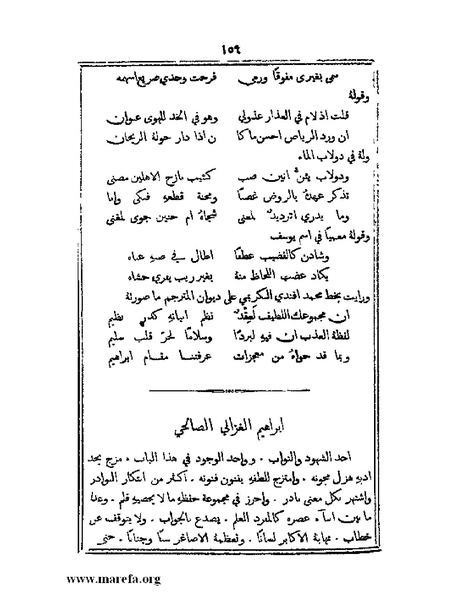 ١٥٩
سمى بغيرى مفوقا ورمى فرحت وحدي صريع اسهمه
وقوله
قلت اذ لام في العذار عذولي وهو في الخد للهوى عنوان
ان ورد الرياض احسن ما كا ن اذا دار حولة الريحان
وله في دولاب الماء
ودولاب يئن انين صب كئيب نازح الاهلين مضنى
تذكر عهده بالروض غصنا ومحنة قطعه فبكى وانا
وما يدري اترديد لمعنى شجاه ام حنين جوى لمغنى
وقوله معميا في اسم يوسف
وشادن كالقضيب عطفا اطال في صده عناه
يكاد عضب اللحاظ منه بغير ريب يفري حشاه
ورايت بخط محمد افندي الكريمي على ديوان المترجم ما صورته
ان مجموعك اللطيف لعقد نظم ابياته كدر نظيم
لفظة العذب ان فيه لبردا وسلاما لحر قلب سليم
وبما قد حواه من معجزات عرفتنا مقام ابراهيم
ابراهيم الغزالي الصالحي
احد الشهود والنواب . وواحد الوجود في هذا الباب . مزج بجد
ادبه هزل مجونه . وامتزج للطفه بفنون فنونه . اكثر من ابتكار النوادر
واشتهر بكل معنى نادر . واحرز في مجموعة حفظه ما لا يحصيه قلم . وغدا
ما بين اسآء عصره كالمفرد العلم . يصدع بالجواب . ولا يتوقف عن
خطاب . تهابة الاكابر لسانا . وتعظمة الاصاغر سنا وجنانا . حتى
www.marefa.org